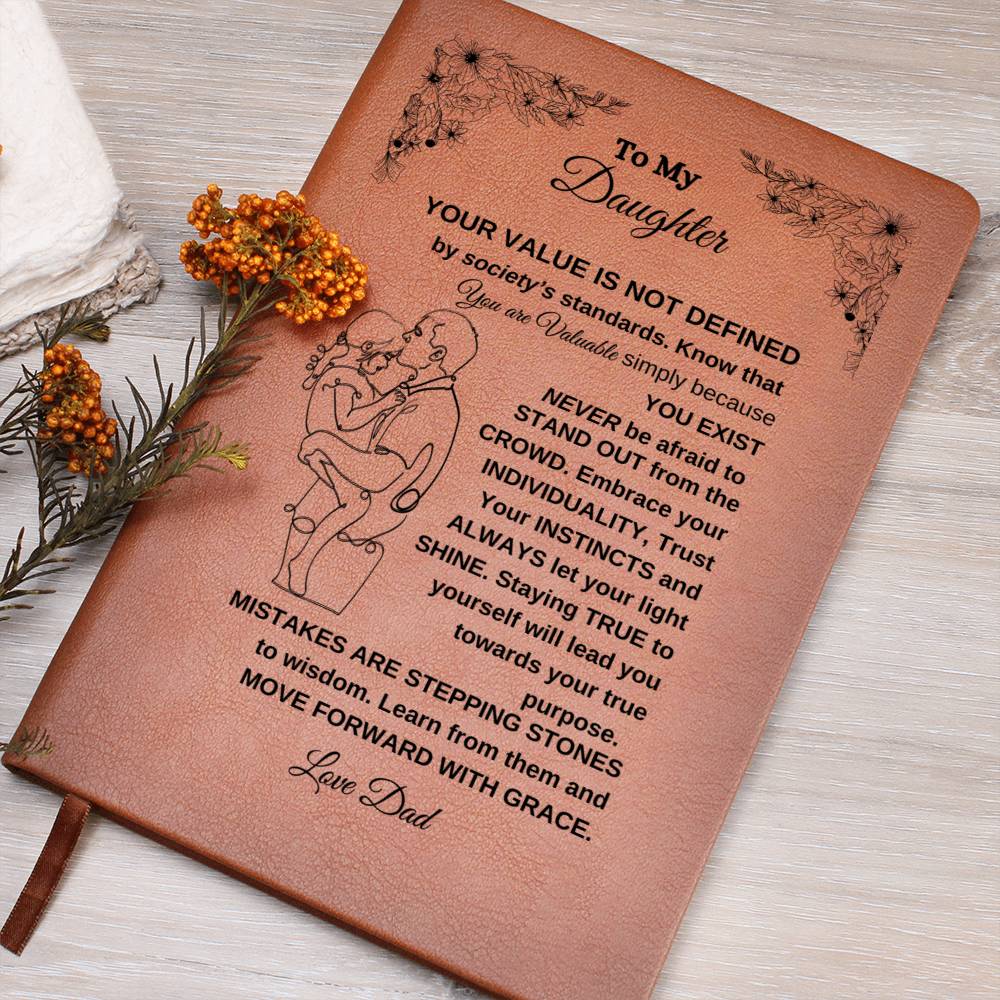 To My
Daughter
YOUR VALUE IS NOT DEFINED
by society's standards. Know that
You are Valuable simply because
YOU EXIST
NEVER be afraid to
STAND OUT from the
CROWD. Embrace your
INDIVIDUALITY, Trust
Your INSTINCTS and
ALWAYS let your light
SHINE. Staying TRUE to
yourself will lead you
towards your true
purpose.
MISTAKES ARE STEPPING STONES
to wisdom. Learn from them and
MOVE FORWARD WITH GRACE.
Love Dad